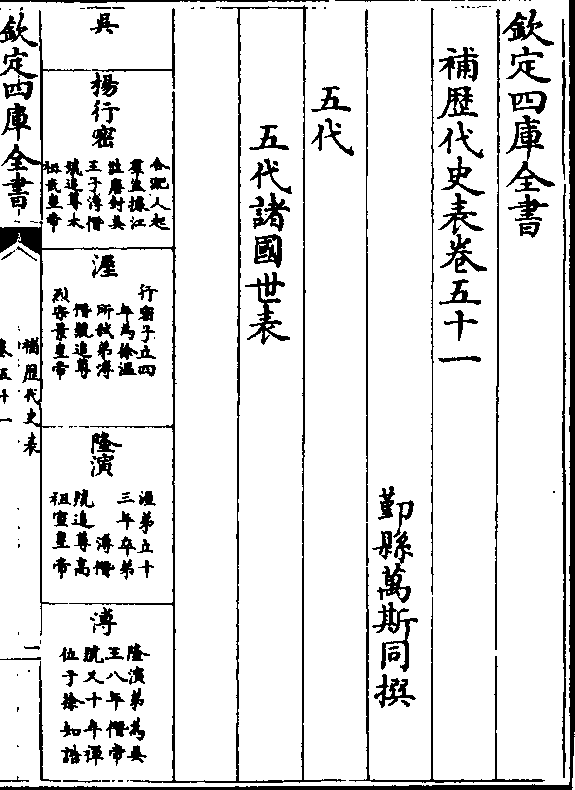 欽定四庫全書
補歷代史表卷五十一
勤縣萬斯同撰
五代
五代諸國世表
吳
楊行密
合淝人起
群盜據江
淮唐封吳
王子溥僭
號追尊太
祖武皇帝
渥
行密子立四
年為徐溫
所弒弟溥
僭號追尊
烈宗景皇帝
隆演
渥弟立十
三年卒弟
溥僭
號追尊高
祖宣皇帝
溥
隆演弟為吳
王八年僭帝
號又十年禪
位于徐知誥
欽定四庫全書
補歷代史表
卷五十一
二